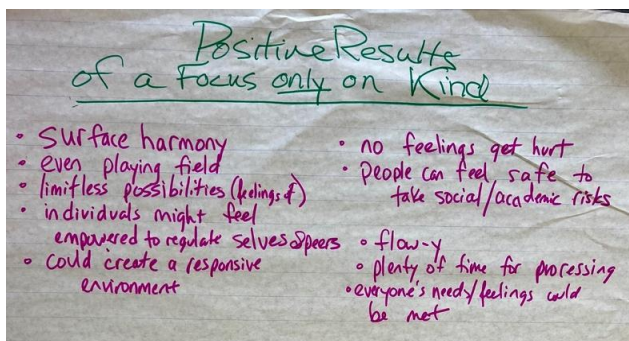 Positive Results
of a Focus only on Kind
• surface harmony
• even playing field
• limitless possibilities (feelings of)
• individuals might feel
empowered to regulate selves & peers
• could create a responsive
environment
• no feelings get hurt
• people can feel safe to
take social/academic risks
• flow-y
• plenty of time for processing
• everyone's needs/feelings could
be met